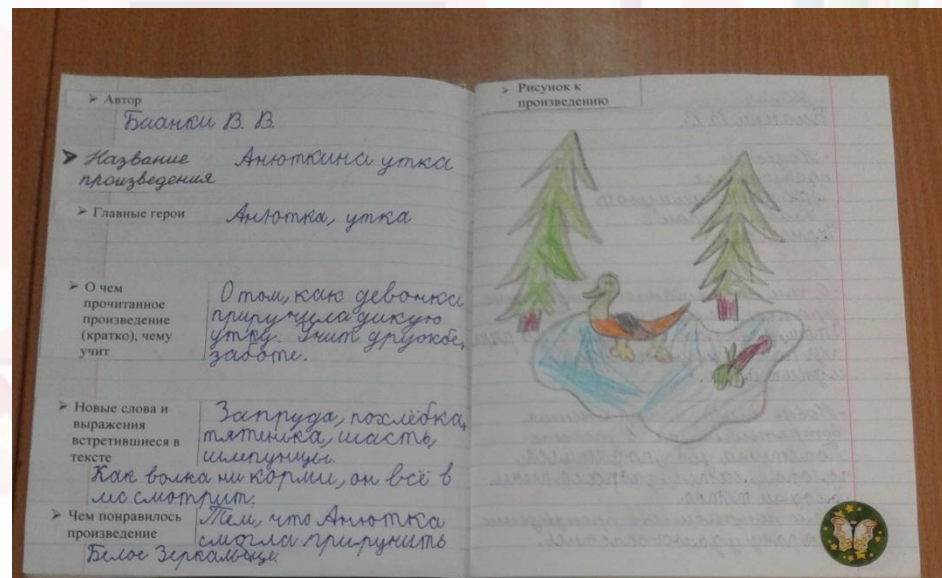 ➤ Автор
Бианки В. В.
➤ Название
произведения
Анюткина утка
➤ Главные герои
Анютка, утка
➤ О чем
прочитанное
произведение
(кратко), чему
учит
О том, как девочка
приручила дикую
утку. Учит дружбе,
заботе.
➤ Новые слова и
выражения
встретившиеся в
тексте
Запруда, похлёбка,
тятенька, шасть,
шлепунцы.
Как волка ни корми, он всё в
лес смотрит.
➤ Чем понравилось
произведение
Тем, что Анютка
смогла приручить
Белое Зеркальце.
➤ Рисунок к
произведению